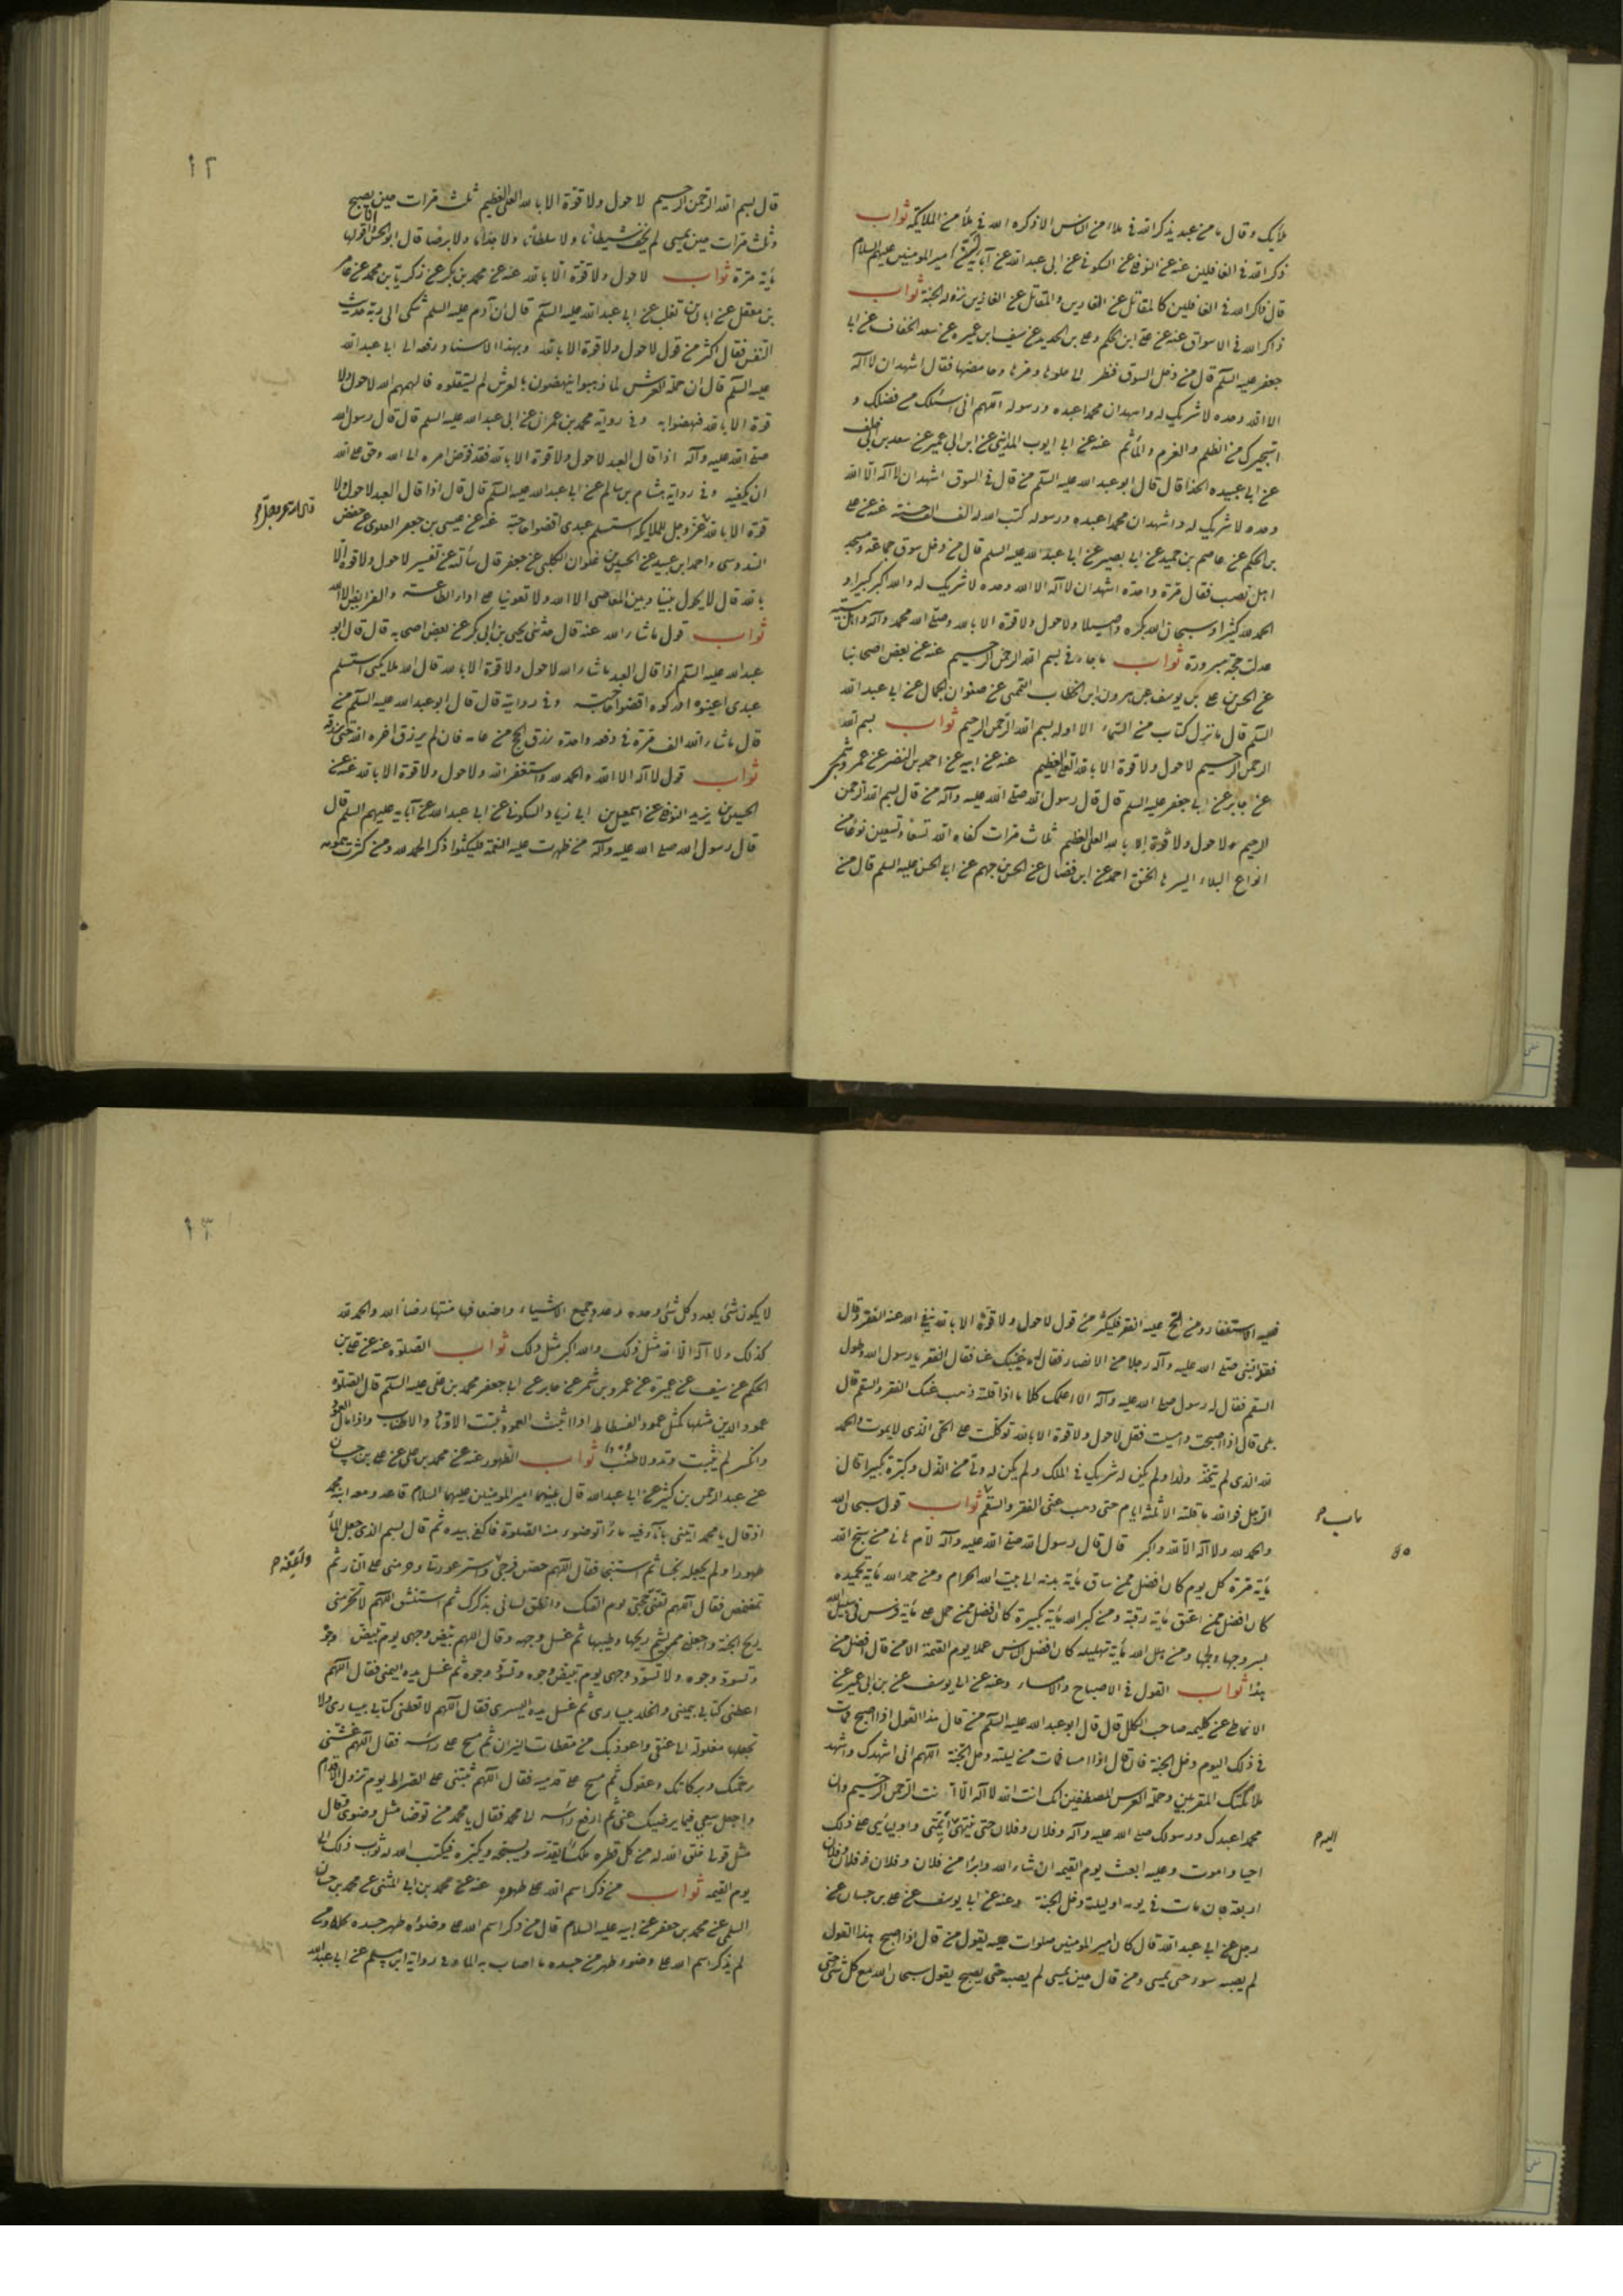 ملائك وقال ما من عبد يذكر الله في ملاء من الناس الا ذكره الله في ملأ من الملايكة ثواب
ذكر الله في الغافلين عنه عن النوفلي عن السكوني عن ابي عبد الله عن آبايه عن امير المومنين عليهم السلام
قال ذاكر الله في الغافلين كالمقاتل عن الفارين والمقاتل عن الفارين نزوله الجنة ثواب
ذاكر الله في الاسواق عنه عن علي ابن الحكم وعلي بن الحديد عن سيف ابن عميره عن سعد الخفاف عن ابي
جعفر عليه السلم قال من دخل السوق فنظر الى حلوها ومرها وحامضها فقال اشهد ان لا اله
الا الله وحده لا شريك له واشهد ان محمدا عبده ورسوله اللهم اني اسئلك من فضلك و
استجيرك من الظلم والغرم والمأثم عنه عن ابي ايوب المدايني عن ابن ابي عمير عن سعد بن ابي خلف
عن ابي عبيده الحذا قال قال ابو عبد الله عليه السلم من قال في السوق اشهد ان لا اله الا الله
وحده لا شريك له واشهد ان محمدا عبده ورسوله كتب الله له الف الف حسنة عنه عن علي
بن الحكم عن عاصم بن حميد عن ابي بصير عن ابي عبد الله عليه السلم قال من دخل سوق جماعة ومسجد
اهل نصب فقال مرة واحدة اشهد ان لا اله الا الله وحده لا شريك له والله اكبر كبيرا و
الحمد لله كثيرا وسبحان الله بكرة واصيلا ولا حول ولا قوة الا بالله وصلى الله محمد وآله واهل بيته
عدلت حجة مبرورة ثواب ما جاء في بسم الله الرحمن الرحيم عنه عن بعض اصحابنا
عن الحسن علي بن يوسف عن هرون ابن الخطاب التميمي عن صفوان الجمال عن ابي عبد الله
السلم قال ما نزل كتاب من السماء الا اوله بسم الله الرحمن الرحيم ثواب بسم الله
الرحمن الرحيم لا حول ولا قوة الا بالله العلي العظيم عنه عن ابيه عن احمد بن النضر عن عمرو بن شمر
عن جابر عن ابي جعفر عليه السلم قال قال رسول الله صلى الله عليه وآله من قال بسم الله الرحمن
الرحيم ولا حول ولا قوة الا بالله العلي العظيم ثلاث مرات كفاه الله تسعا وتسعين نوعا من
انواع البلاء ايسرها الخنق احمد عن ابن فضال عن الحسن بن جهم عن ابي الحسن عليه السلم قال من
١٢
قال بسم الله الرحمن الرحيم لا حول ولا قوة الا بالله العلي العظيم ثلث مرات حين يصبح
وثلث مرات حين يمسي لم يخف شيطانا ولا سلطانا ولا جذاما ولا برصا قال ابو الحسن انا اقولها
مأية مرة ثواب لا حول ولا قوة الا بالله عنه عن محمد بن بكر عن زكريا بن محمد عن عامر
بن معقل عن ابان بن تغلب عن ابي عبد الله عليه السلم قال ان آدم عليه السلم شكى الى ربه حديث
النفس فقال اكثر من قول لا حول ولا قوة الا بالله وبهذا الاسناد رفعه الى ابي عبد الله
عليه السلم قال ان حملة العرش لما ذهبوا ينهضون بالعرش لم يستقلوه فالهمهم الله لا حول ولا
قوة الا بالله فنهضوا به وفي رواية محمد بن عمران عن ابي عبد الله عليه السلم قال قال رسول الله
صلى الله عليه وآله اذا قال العبد لا حول ولا قوة الا بالله فقد فوض امره الى الله وحق على الله
ان يكفيه وفي رواية هشام بن سالم عن ابي عبد الله عليه السلم قال قال اذا قال العبد لا حول ولا
قوة الا بالله عز وجل للملايكه استسلم عبدي اقضوا حاجته عنه عن عيسى بن جعفر العلوي عن حفص
قال الله عز وجل
السدوسي واحمد ابن عبيد عن الحسين بن علوان الكلبي عن جعفر قال سألته عن تفسير لا حول ولا قوة الا
بالله قال لا يحول بيننا وبين المعاصي الا الله ولا تقوينا على اداء الطاعة والفرايض الا الله
ثواب قول ما شاء الله عنه قال حدثني يحيى بن ابي بكر عن بعض اصحابه قال قال ابو
عبد الله عليه السلم اذا قال العبد ما شاء الله لا حول ولا قوة الا بالله قال الله ملايكتي استسلم
عبدي اعينوه ادركوه اقضوا حاجته وفي رواية قال قال ابو عبد الله عليه السلم من
قال ما شاء الله الف مرة في دفعه واحدة رزق الحج من عامه فان لم يرزق اخره الله حتى يرزقه
ثواب قول لا اله الا الله والحمد لله واستغفر الله ولا حول ولا قوة الا بالله عنه عن
الحسين بن يزيد النوفلي عن اسمعيل بن ابي زياد السكوني عن ابي عبد الله عن آبايه عليهم السلم قال
قال رسول الله صلى الله عليه وآله من ظهرت عليه النعمة فليكثر ذكر الحمد لله ومن كثرت همومه
فعليه الاستغفار ومن الح عليه الفقر فليكثر من قول لا حول ولا قوة الا بالله ينفي الله عنه الفقر وقال
فقد النبي صلى الله عليه وآله رجلا من الانصار فقال له ما غيبك عنا فقال الفقر يا رسول الله وطول
السقم فقال له رسول صلى الله عليه وآله الا اعلمك كلاما اذا قلته ذهب عنك الفقر والسقم قال
بلى قال اذا اصبحت وامسيت فقل لا حول ولا قوة الا بالله توكلت على الحي الذي لا يموت والحمد
لله الذي لم يتخذ ولدا ولم يكن له شريك في الملك ولم يكن له ولي من الذل وكبره تكبيرا قال
الرجل فوالله ما قلته الا ثلثة ايام حتى ذهب عني الفقر والسقم ثواب قول سبحان الله
والحمد لله ولا اله الا الله واكبر قال قال رسول الله صلى الله عليه وآله لام هاني من سبح الله
مأية مرة كل يوم كان افضل ممن ساق مأية بدنه الى بيت الله الحرام ومن حمد الله مأية تحميده
كان افضل ممن اعتق مأية رقبة ومن كبر الله مأية تكبيرة كان افضل ممن حمل على مأية فرس في سبيل الله
بسروجها ولجمها ومن هلل الله مأية تهليله كان افضل الناس عملا يوم القيمة الا من قال افضل من
هذا ثواب القول في الاصباح والامساء وعنه عن ابي يوسف عن بن ابي عمير عن
الانماطي عن كليمه صاحب الكلل قال قال ابو عبد الله عليه السلم من قال هذا القول اذا اصبح فمات
في ذلك اليوم دخل الجنة فان قال اذا امسا فمات من ليلته دخل الجنة اللهم اني اشهدك واشهد
ملائكتك المقربين وحملة العرش المصطفين انك انت الله لا اله الا انت الرحمن الرحيم وان
محمدا عبدك ورسولك صلى الله عليه وآله وفلان وفلان حتى ينتهي ائمتي واوليائي على ذلك
اليه
احيا واموت وعليه ابعث يوم القيمه ان شاء الله وابرأ من فلان وفلان وفلان وفلان
اربعة فان مات في يومه او ليلته دخل الجنة وعنه عن ابي يوسف عن علي بن حسان عن
رجل عن ابي عبد الله قال كان امير المومنين صلوات عليه يقول من قال اذا اصبح هذا القول
لم يصبه سوء حتى يمسي ومن قال حين يمسي لم يصبه حتى يصبح يقول سبحان الله مع كل شئ حتى
١٣
لا يكون شئ بعدد كل شئ وحده وعدد جميع الاشياء واضعافها منتها رضا الله والحمد لله
كذلك ولا اله الا الله مثل ذلك والله اكبر مثل ذلك ثواب الصلوة عنه عن علي بن
الحكم عن سيف عن عميرة عن عمرو بن شمر عن جابر عن ابي جعفر محمد بن علي عليه السلم قال الصلوة
عمود الدين مثلها كمثل عمود الفسطاط اذا ثبت العمود ثبتت الاوتاد والاطناب واذا مال العمود
وانكسر لم يثبت وتد ولا طنب ثواب الطهور عنه عن محمد بن علي عن علي بن حسان
عن عبد الرحمن بن كثير عن ابي عبد الله قال بينهما امير المومنين عليهما السلام قاعد ومعه ابنه محمد
اذ قال يا محمد ايتني باناء فيه ماء اتوضوء منه للصلوة فاكفى بيده ثم قال بسم الذي جعل الماء
طهورا ولم يجعله نجسا ثم استنجى فقال اللهم حصن فرجي واستر عورتي وحرمني على النار ثم
تمضمض فقال اللهم لقني حجتي يوم القاك وانطق لساني بذكرك ثم استنشق اللهم لا تحرمني
ريح الجنة واجعلني ممن يشم ريحها وطيبها ثم غسل وجهه وقال اللهم بيض وجهي يوم تبيض وجوه
وتسود وجوه ولا تسود وجهي يوم تبيض وجوه وتسود وجوه ثم غسل يده اليمنى فقال اللهم
اعطني كتابي بيميني والخلد بيساري ثم غسل يده اليسرى فقال اللهم لا تعطني كتابي بيساري ولا
تجعلها مغلولة الى عنقي واعوذ بك من مقطعات النيران ثم مسح على رأسه فقال اللهم غشني
رحمتك وبركاتك وعفوك ثم مسح على قدميه فقال اللهم ثبتني على الصراط يوم تزول الاقدام
واجعل سعيي فيما يرضيك عني ثم ارفع رأسه الى محمد فقال يا محمد من توضأ مثل وضوئي وقال
مثل قولي خلق الله له من كل قطره ملكا يقدسه ويسبحه ويكبره فيكتب الله له ثواب ذلك الى
يوم القيمه ثواب من ذكر اسم الله على طهوره عنه عن محمد بن ابي المثنى عن محمد بن حسان
السلمي عن محمد بن جعفر عن ابيه عليه السلام قال من ذكر اسم الله على وضوئه طهر جسده كله ومن
لم يذكر اسم الله على وضوءه طهر من جسده ما اصاب به الماء وفي رواية ابن مسلم عن ابي عبد الله